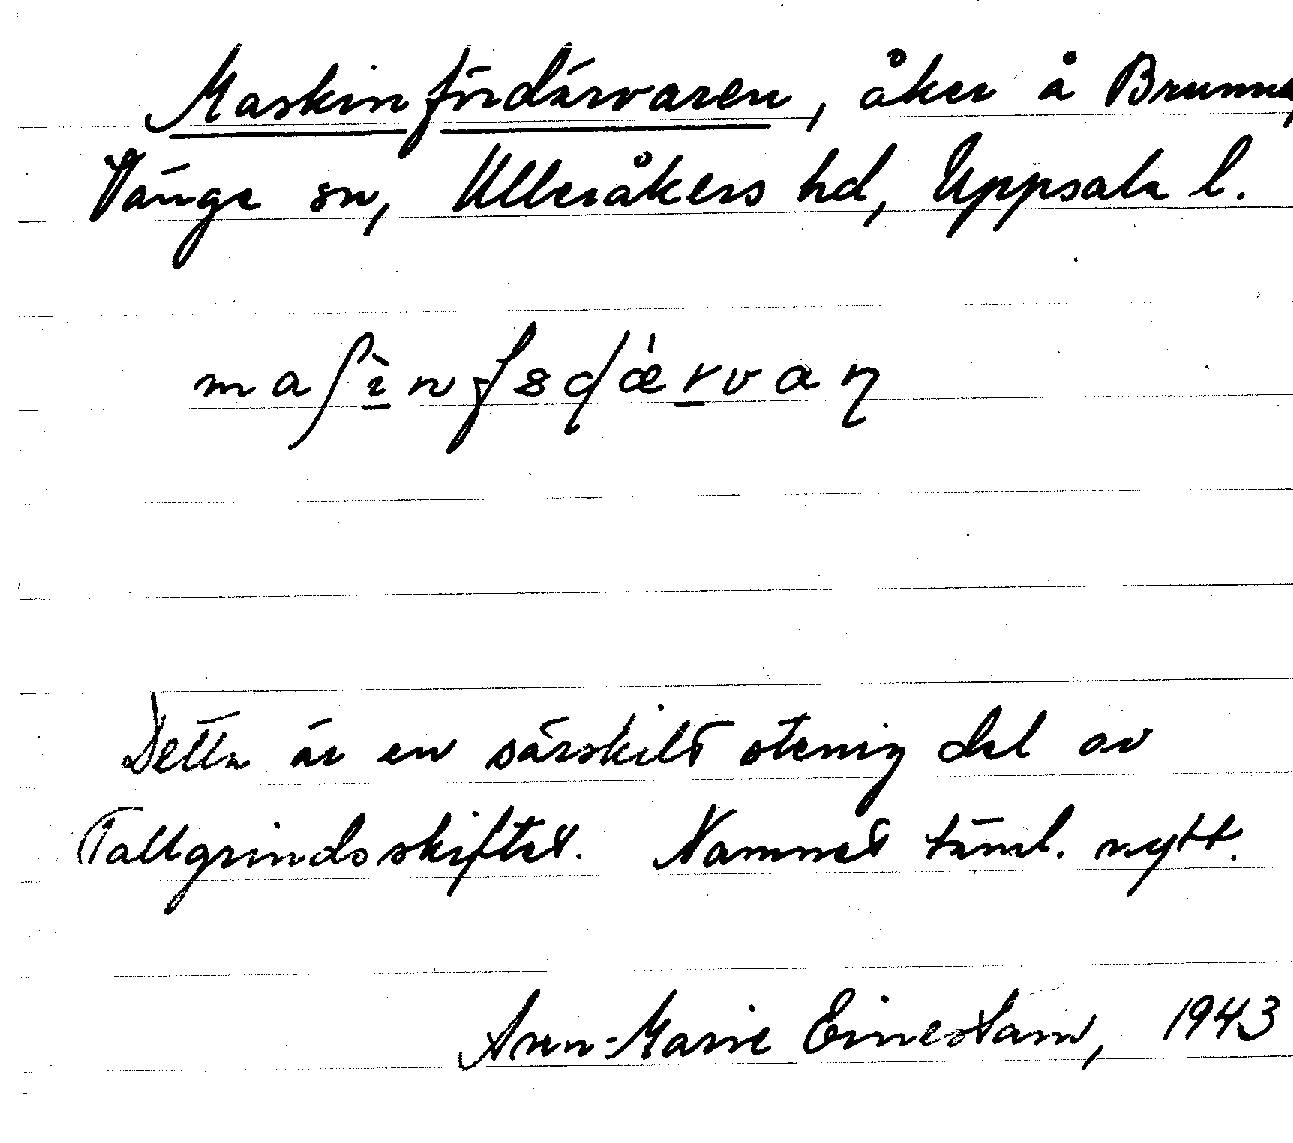 Maskinfördärvaren, åker å Brunna,
Vänge sn, Ulleråkers hd, Uppsala l.
maʃìnfədǽrvaņ
Detta är en särskilt stenig del av
Tallgrindsskiftet. Namnet täml. nytt.
Ann-Marie Einestam, 1943